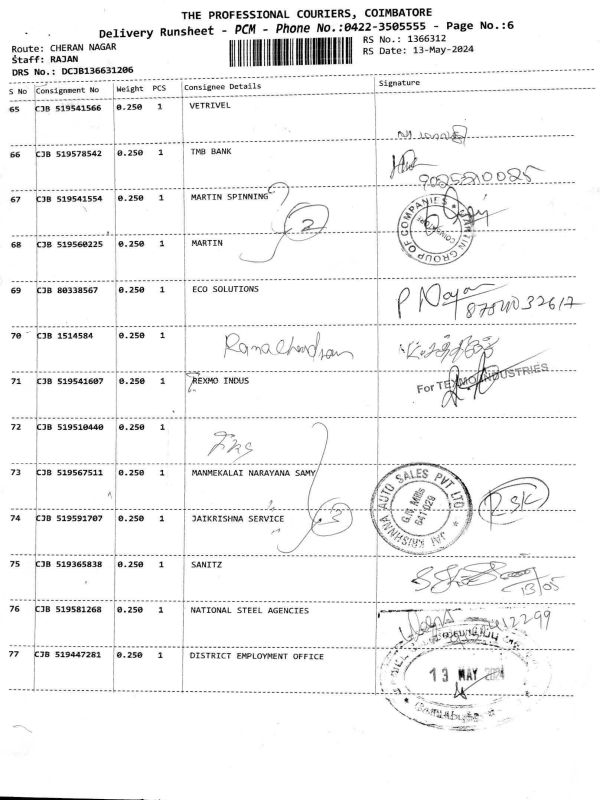 THE PROFESSIONAL COURIERS, COIMBATORE
Delivery Runsheet - PCM - Phone No.:0422-3505555 - Page No.:6
Route: CHERAN NAGAR
Staff: RAJAN
DRS No.: DCJB136631206
RS No.: 1366312
RS Date: 13-May-2024
S No Consignment No Weight PCS Consignee Details Signature
65 CJB 519541566 0.250 1 VETRIVEL
66 CJB 519578542 0.250 1 TMB BANK
67 CJB 519541554 0.250 1 MARTIN SPINNING
MARTIN GROUP OF COMPANIES
COIMBATORE
2
68 CJB 519560225 0.250 1 MARTIN
69 CJB 80338567 0.250 1 ECO SOLUTIONS
70 CJB 1514584 0.250 1 Ramachandran
71 CJB 519541607 0.250 1 REXMO INDUS
For TEXMO INDUSTRIES
72 CJB 519510440 0.250 1
73 CJB 519567511 0.250 1 MANMEKALAI NARAYANA SAMY
JAI KRISHNNA AUTO SALES PVT LTD
G.N. Mills
641-029
74 CJB 519591707 0.250 1 JAIKRISHNA SERVICE
75 CJB 519365838 0.250 1 SANITZ
13/05
76 CJB 519581268 0.250 1 NATIONAL STEEL AGENCIES
77 CJB 519447281 0.250 1 DISTRICT EMPLOYMENT OFFICE
13 MAY 2024